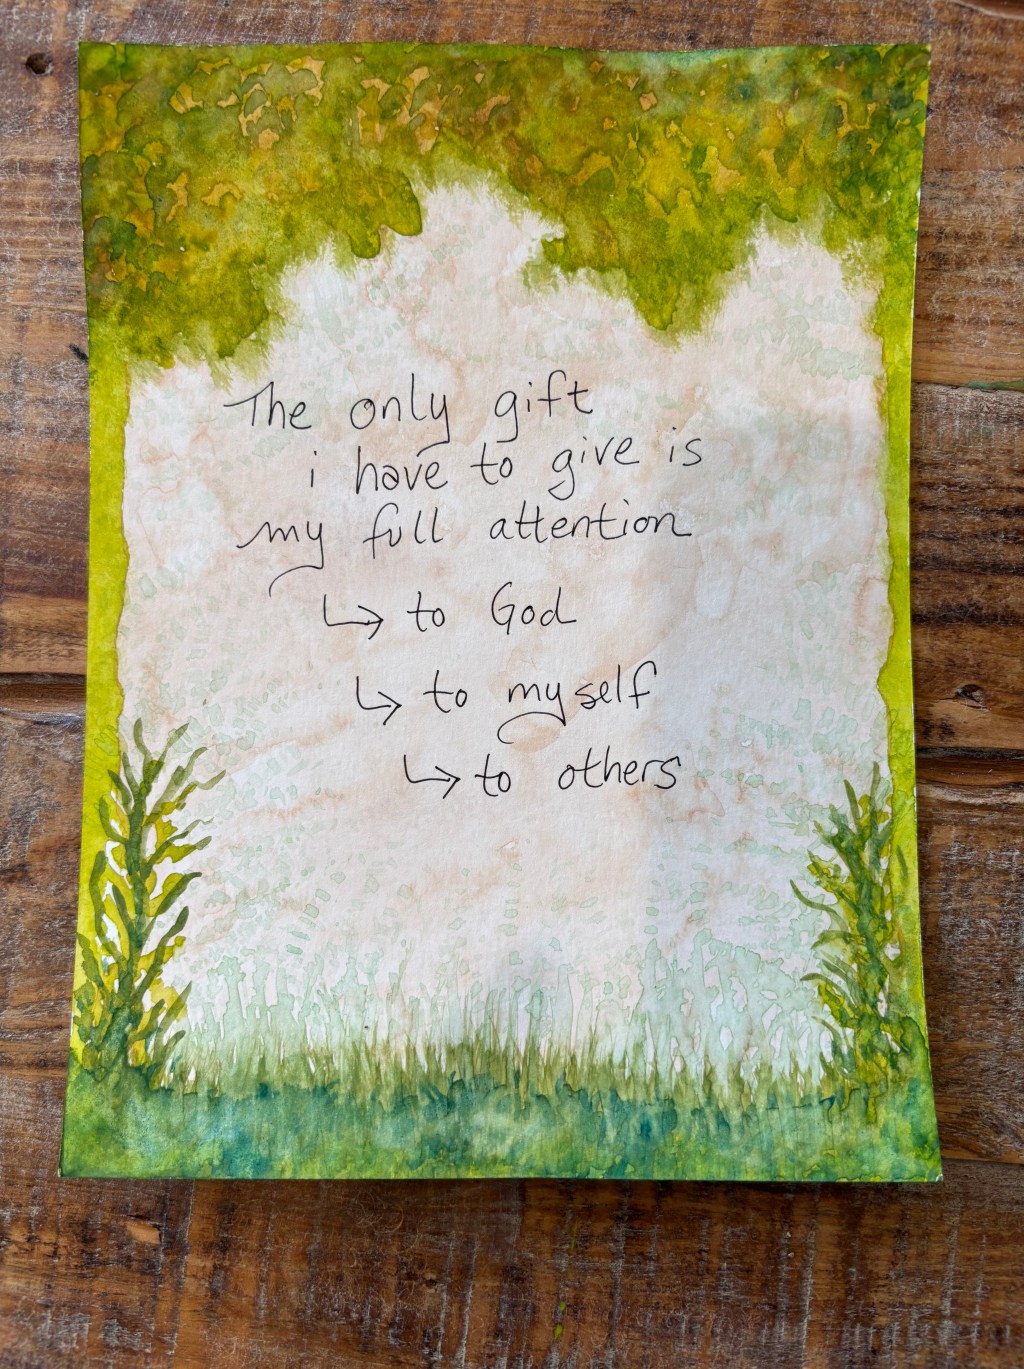 The only gift
i have to give is
my full attention
↳ to God
↳ to myself
↳ to others